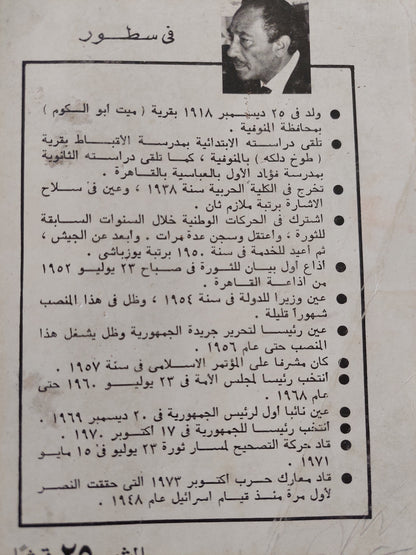 فى سطور
ولد فى ٢٥ ديسمبر ١٩١٨ بقرية ( ميت ابو الكوم )
بمحافظة المنوفية .
تلقى دراسته الابتدائية بمدرسة الأقباط بقرية
( طوخ دلكه ) بالمنوفية ، كما تلقى دراسته الثانوية
بمدرسة فؤاد الأول بالعباسية بالقاهرة .
تخرج فى الكلية الحربية سنة ١٩٣٨ ، وعين فى سلاح
الاشارة برتبة ملازم ثان .
اشترك فى الحركات الوطنية خلال السنوات السابقة
للثورة ، واعتقل وسجن عدة مرات . وابعد عن الجيش ،
ثم أعيد للخدمة فى سنة ١٩٥٠ برتبة يوزباشى .
اذاع أول بيان للثورة فى صباح ٢٣ يوليو ١٩٥٢
من اذاعة القاهرة .
عين وزيرا للدولة فى سنة ١٩٥٤ ، وظل فى هذا المنصب
شهورا قليلة .
عين رئيسا لتحرير جريدة الجمهورية وظل يشغل هذا
المنصب حتى عام ١٩٥٦ .
كان مشرفا على المؤتمر الاسلامى فى سنة ١٩٥٧ .
أنتخب رئيسا لمجلس الأمة فى ٢٣ يوليو ١٩٦٠ حتى
عام ١٩٦٨ .
عين نائبا أول لرئيس الجمهورية فى ٢٠ ديسمبر ١٩٦٩ .
انتخب رئيسا للجمهورية فى ١٧ أكتوبر ١٩٧٠ .
قاد حركة التصحيح لمسار ثورة ٢٣ يوليو فى ١٥ مايو
١٩٧١ .
قاد معارك حرب اكتوبر ١٩٧٣ التى حققت النصر
لأول مرة منذ قيام اسرائيل عام ١٩٤٨ .
٢٥